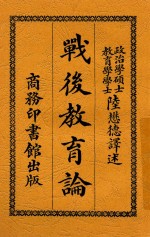 政治學碩士
教育學學士
陸懋德譯述
戰後教育論
商務印書館出版